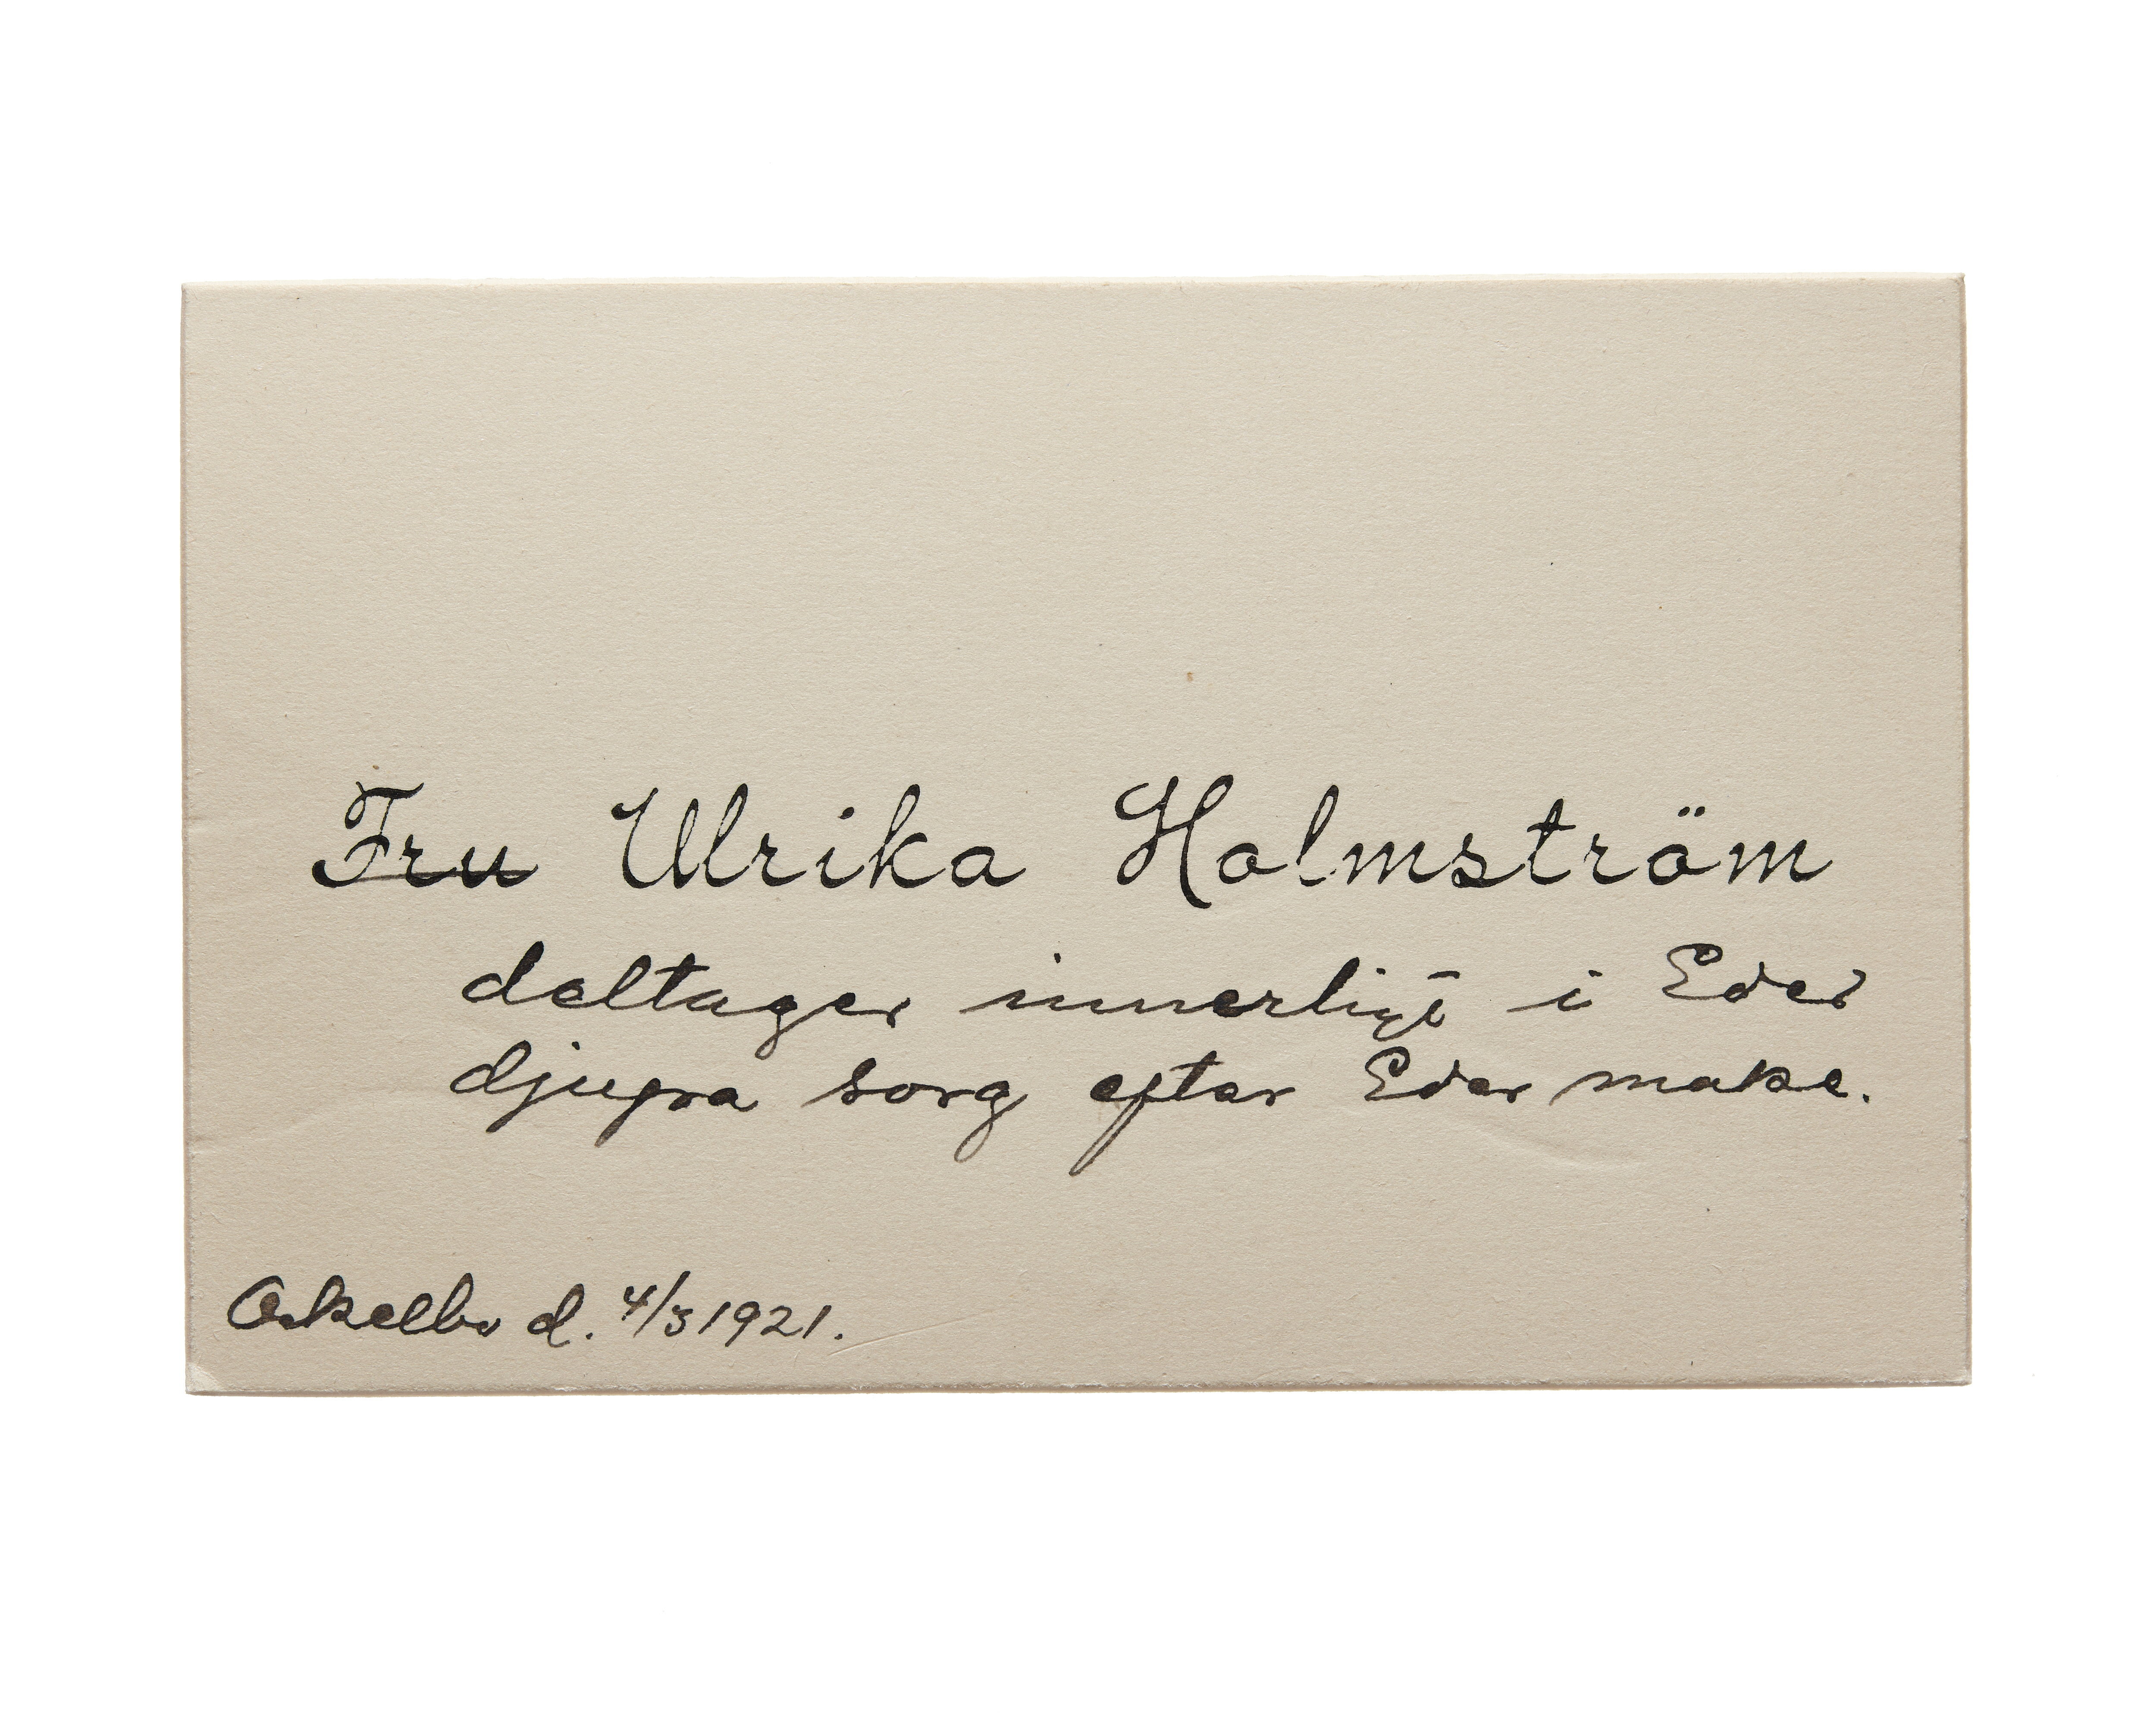 Fru Ulrika Holmström
deltager innerligt i Eder
djupa sorg efter Eder make.
Ockelbo d. 4/3 1921.